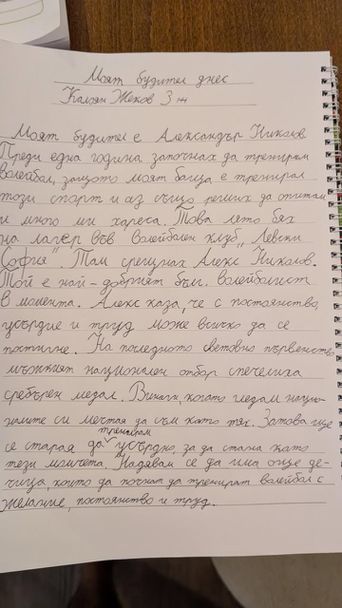 Моят будител днес
Калоян Жеков 3 ж
Моят будител е Александър Николов
Преди една година започнах да тренирам
волейбол, защото моят баща е тренирал
този спорт и аз също реших да опитам
и много ми хареса. Това лето бях
на лагер във Волейболен клуб „Левски
София". Там срещнах Алекс Николов.
Той е най-добрият бъл. волейболист
в момента. Алекс каза, че с постоянство,
усърдие и труд може всичко да се
постигне. На последното световно първенство
мъжкият национален отбор спечелиха
сребърен медал. Винаги, когато гледам нацио-
налите си мечтая да съм като тях. Затова ще
се старая да тренирам усърдно, за да стана като
тези момчета. Надявам се да има още де-
чица, които да почнат да тренират волейбол с
желание, постоянство и труд.